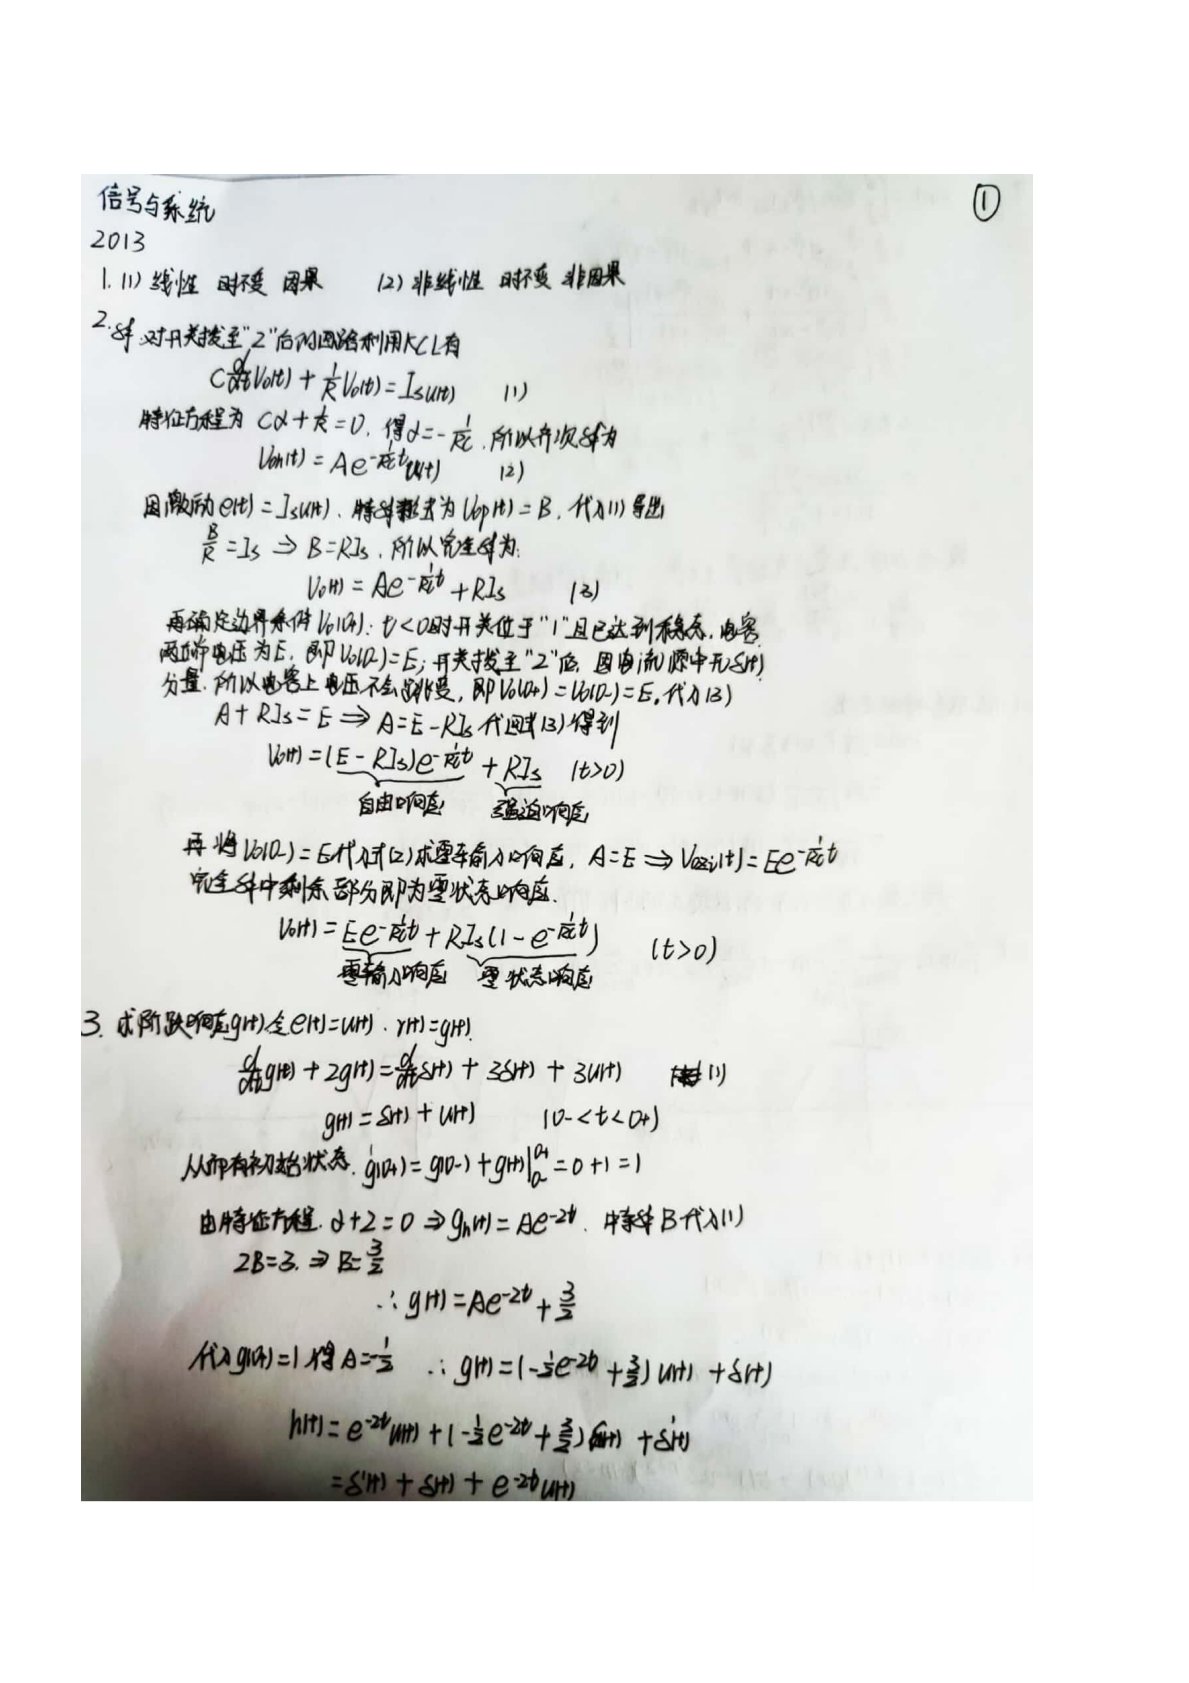 信号与系统 ①
2013
1. (1) 线性 时不变 因果 (2) 非线性 时不变 非因果
2. 解: 对开关拨至"2"后的回路利用KCL有
C d/dt V₀(t) + 1/R V₀(t) = Is u(t) (1)
特征方程为 Cα + 1/R = 0, 得 α = -1/RC, 所以齐次解为
V₀h(t) = A e^(-1/RC t) u(t) (2)
因激励 e(t) = Is u(t), 特解形式为 V₀p(t) = B, 代入(1)导出
B/R = Is ⇒ B = RIs, 所以完全解为:
V₀(t) = A e^(-1/RC t) + RIs (3)
再确定边界条件 V₀(0+): t<0时开关位于"1"且已达到稳态, 电容
两端电压为E, 即V₀(0-) = E; 开关拨至"2"后, 因电流源中无δ(t)
分量, 所以电容上电压不会跳变, 即V₀(0+) = V₀(0-) = E, 代入(3)
A + RIs = E ⇒ A = E - RIs 代回式(3)得到
V₀(t) = (E - RIs) e^(-1/RC t) + RIs (t>0)
自由响应 强迫响应
再将V₀(0-) = E代入式(2)求零输入响应, A = E ⇒ V₀zi(t) = E e^(-1/RC t)
完全解中剩余部分即为零状态响应.
V₀(t) = E e^(-1/RC t) + RIs (1 - e^(-1/RC t)) (t>0)
零输入响应 零状态响应
3. 求阶跃响应g(t)令e(t) = u(t), r(t) = g(t).
d/dt g(t) + 2g(t) = d/dt δ(t) + 3δ(t) + 3u(t) (1)
g(t) = δ(t) + u(t) (0- < t < 0+)
从而有初始状态, g(0+) = g(0-) + g(t)|₀₋⁰⁺ = 0 + 1 = 1
由特征方程, α + 2 = 0 ⇒ gh(t) = A e^(-2t), 特解 B 代入(1)
2B = 3. ⇒ B = 3/2
∴ g(t) = A e^(-2t) + 3/2
代入g(0+) = 1 得 A = -1/2 ∴ g(t) = (-1/2 e^(-2t) + 3/2) u(t) + δ(t)
h(t) = e^(-2t) u(t) + (-1/2 e^(-2t) + 3/2) δ(t) + δ'(t)
= δ'(t) + δ(t) + e^(-2t) u(t)